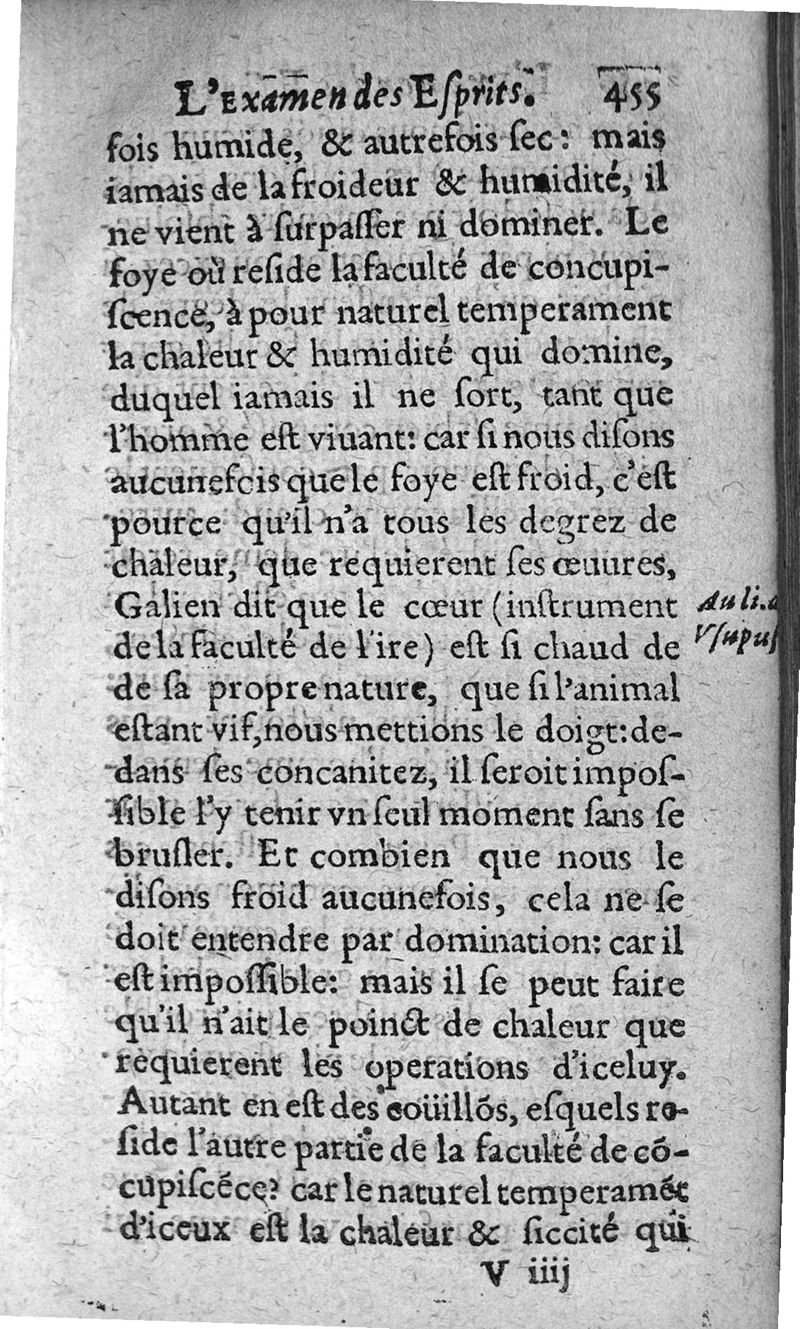 L'Examen des Eſprits. 455
fois humide, & autrefois ſec: mais
iamais de la froideur & humidité, il
ne vient à ſurpaſſer ni dominer. Le
foye où reſide la faculté de concupi-
ſcence, à pour naturel temperament
la chaleur & humidité qui domine,
duquel iamais il ne ſort, tant que
l'homme eſt viuant: car ſi nous diſons
aucunefois que le foye eſt froid, c'eſt
pource qu'il n'a tous les degrez de
chaleur, que requierent ſes œuures,
Galien dit que le cœur (inſtrument
de la faculté de l'ire) eſt ſi chaud de
de ſa propre nature, que ſi l'animal
eſtant vif, nous mettions le doigt: de-
dans ſes concanitez, il ſeroit impoſ-
ſible l'y tenir vn ſeul moment ſans ſe
bruſler. Et combien que nous le
diſons froid aucunefois, cela ne ſe
doit entendre par domination: car il
eſt impoſſible: mais il ſe peut faire
qu'il n'ait le poinct de chaleur que
requierent les operations d'iceluy.
Autant en eſt des coüillõs, eſquels re-
ſide l'autre partie de la faculté de cõ-
cupiſcẽce? car le naturel temperamẽt
d'iceux eſt la chaleur & ſiccité qui
V iiij
Au li.
Vſupuſ